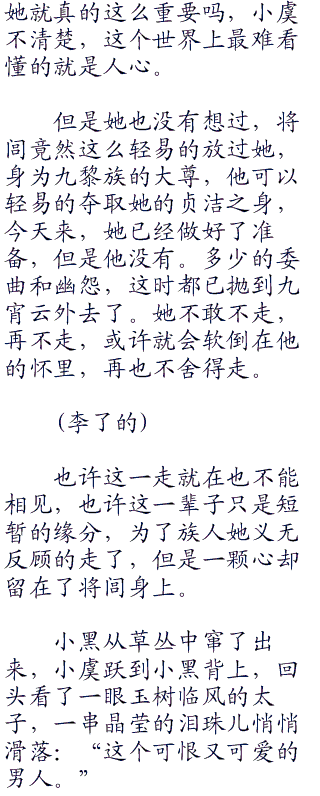 她就真的这么重要吗，小虞
不清楚，这个世界上最难看
懂的就是人心。
但是她也没有想过，将
闾竟然这么轻易的放过她，
身为九黎族的大尊，他可以
轻易的夺取她的贞洁之身，
今天来，她已经做好了准
备，但是他没有。多少的委
曲和幽怨，这时都已抛到九
宵云外去了。她不敢不走，
再不走，或许就会软倒在他
的怀里，再也不舍得走。
(李了的)
也许这一走就在也不能
相见，也许这一辈子只是短
暂的缘分，为了族人她义无
反顾的走了，但是一颗心却
留在了将闾身上。
小黑从草丛中窜了出
来，小虞跃到小黑背上，回
头看了一眼玉树临风的太
子，一串晶莹的泪珠儿悄悄
滑落：“这个可恨又可爱的
男人。”